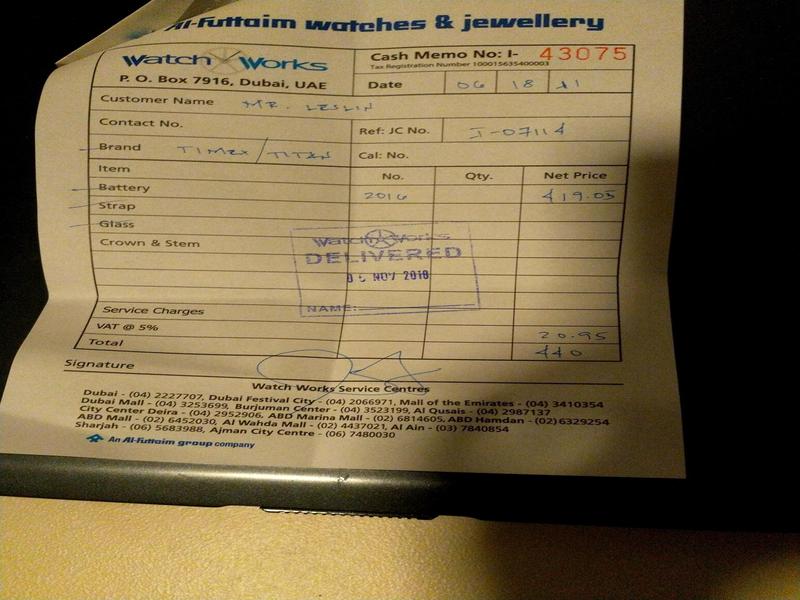 Al-Futtaim watches & jewellery
Watch Works
P. O. Box 7916, Dubai, UAE
Cash Memo No: I- 43075
Tax Registration Number 100015635400003
Date 06 18 11
Customer Name MR. LESLIN
Contact No.
Ref: JC No. J-07114
Brand TIMEX/TITAN
Cal: No.
Item No. Qty. Net Price
Battery 2016 419.05
Strap
Glass
Crown & Stem
Watch Works
DELIVERED
NOV 2018
NAME:
Service Charges
VAT @ 5% 20.95
Total 440
Signature
Watch Works Service Centres
Dubai - (04) 2227707, Dubai Festival City - (04) 2066971, Mall of the Emirates - (04) 3410354
Dubai Mall - (04) 3253699, Burjuman Center - (04) 3523199, Al Qusais - (04) 2987137
City Center Deira - (04) 2952906, ABD Marina Mall - (02) 6814605, ABD Hamdan - (02) 6329254
ABD Mall - (02) 6452030, Al Wahda Mall - (02) 4437021, Al Ain - (03) 7840854
Sharjah - (06) 5683988, Ajman City Centre - (06) 7480030
An Al-Futtaim group company